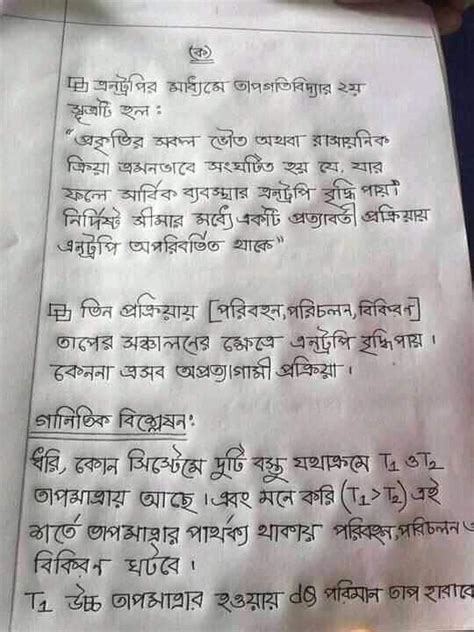 (ক)
এনট্রপির মাধ্যমে তাপগতিবিদ্যার ২য়
সূত্রটি হল :
"প্রকৃতির সকল ভৌত অথবা রাসায়নিক
ক্রিয়া এমনভাবে সংঘটিত হয় যে, যার
ফলে সার্বিক ব্যবস্থার এনট্রপি বৃদ্ধি পায়।
নির্দিষ্ট সীমার মধ্যে একটি প্রত্যাবর্তী প্রক্রিয়ায়
এনট্রপি অপরিবর্তিত থাকে"
তিন প্রক্রিয়ায় [পরিবহন,পরিচলন,বিকিরন]
তাপের সঞ্চালনের ক্ষেত্রে এনট্রপি বৃদ্ধিপায়।
কেননা এসব অপ্রত্যাগামী প্রক্রিয়া।
গানিতিক বিশ্লেষন:
ধরি, কোন সিস্টেমে দুটি বস্তু যথাক্রমে T₁ ও T₂
তাপমাত্রায় আছে। এবং মনে করি (T₁>T₂) এই
শর্তে তাপমাত্রার পার্থক্য থাকায় পরিবহন,পরিচলন ও
বিকিরন ঘটবে।
T₁ উচ্চ তাপমাত্রার হওয়ায় dQ পরিমান তাপ হারাবে